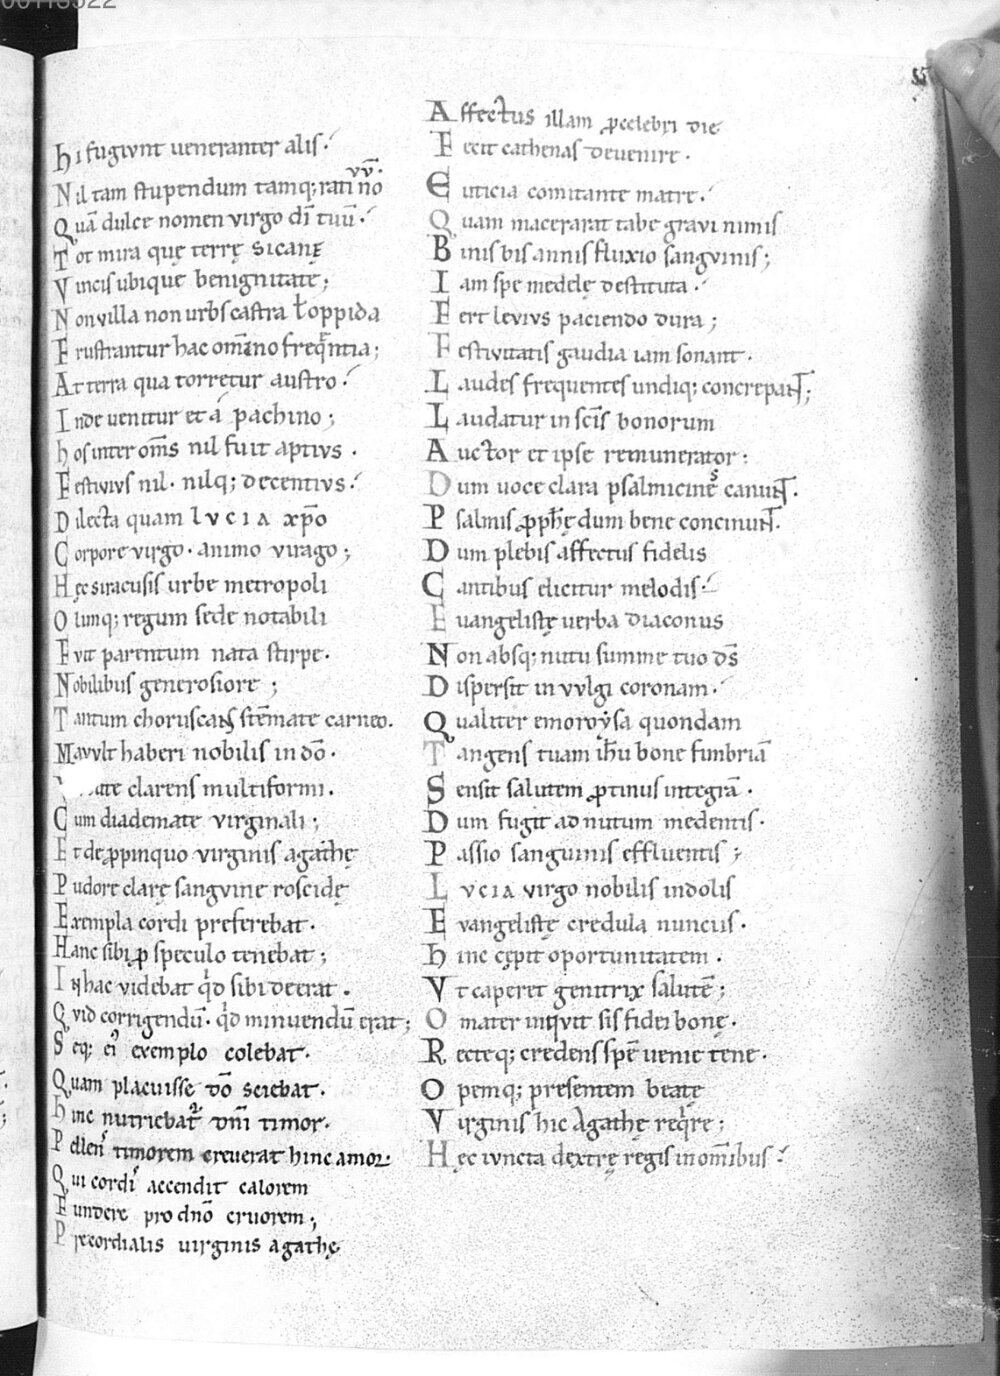 00113522
85
hi fugiunt ueneranter alis.
Nil tam stupendum tamq; rati nō
Quā dulce nomen virgo dī tuū.
Tot mira quę terrę sicanę
Vincis ubique benignitate;
Non villa non urbs castra ł oppida
Frustrantur hac omīno freq̄ntia;
At terra qua torretur austro.
Inde uenitur et á pachino;
hos inter om̄s nil fuit aptius.
Festiuius nil. nilq; decentius.
Dilecta quam lucia xp̄o
Corpore virgo. animo virago;
Hęc siracusis urbe metropoli
Olimq; regum sede notabili
Fuit parentum nata stirpe.
Nobilibus generosiore;
Tantum choruscans stēmate carneo.
Mauult haberi nobilis in dō.
clarens multiformi.
Cum diademate virginali;
Et de ꝓpinquo virginis agathę
Pudore clarę sanguine roscidę
Exempla cordi preferebat.
Hanc sibi ꝓ speculo tenebat;
In hac videbat qd sibi deerat.
Quid corrigendū. qd minuendū erat;
Seq; ei exemplo colebat.
Quam placuisse dō sciebat.
hinc nutriebat dn̄i timor.
Pellens timorem creuerat hinc amor.
Qui cordi accendit calorem
Fundere pro dn̄o cruorem;
Precordialis uirginis agathę
Affectus illam ꝓ celebri die
Fecit cathenas deuenire.
Euticia comitante matre.
Quam macerarat tabe graui nimis
Binis bis annis fluxio sanguinis;
Iam spe medelę destituta.
Fert leuius paciendo dura;
Festiuitatis gaudia iam sonant.
Laudes frequentes undiq; concrepant;
Laudatur in scīs bonorum
Auctor et ipse remunerator:
Dum uoce clara psalmicinēs canunt.
Psalmis ꝓphę dum bene concinunt.
Dum plebis affectus fidelis
Cantibus elicitur melodis.
Euangelistę uerba diaconus
Non absq; nutu summe tuo dś
Dispersit in vulgi coronam.
Qualiter emoroysa quondam
Tangens tuam ih̄u bone fimbriā
Sensit salutem ꝓtinus integrā.
Dum fugit ad nutum medentis.
Passio sanguinis effluentis;
Lucia virgo nobilis indolis
Euangelistę credula nunciis.
hinc cępit oportunitatem.
Vt caperet genitrix salutē;
O mater inquit sis fidei bonę.
Recteq; credens spē ueni et tene.
Opemq; presentem beatę
Virginis hic Agathę reqre;
Hęc iuncta dextrę regis in om̄ibus